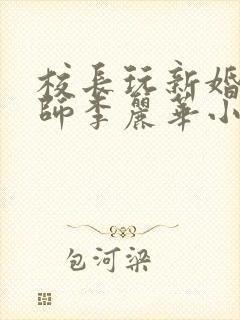 校長玩新婚
師李麗華小
包河梁